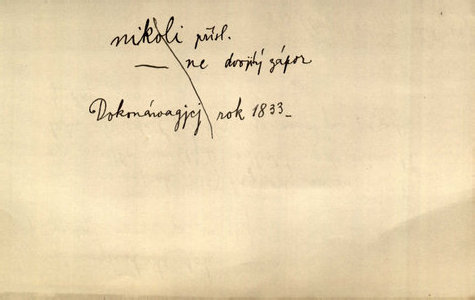 nikoli přísl.
— ne dvojitý zápor
Dokonáwagjcj rok 1833_